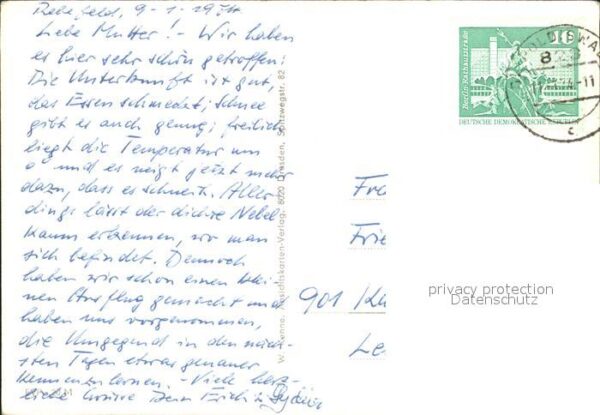 Rehefeld, 9-1-1974
Liebe Mutter! - Wir haben
es hier sehr schön getroffen!
Die Unterkunft ist gut,
das Essen schmeckt; Schnee
gibt es auch genug; freilich
liegt die Temperatur um
0 und es neigt jetzt mehr
dazu, dass es schneit. Aller
dings lässt der dichte Nebel
kaum erkennen, wo man
sich befindet. Dennoch
haben wir schon einen klei-
nen Ausflug gemacht und
haben uns vorgenommen,
die Umgegend in den näch-
sten Tagen etwas genauer
kennenzulernen. - Viele herz-
liche Grüsse Dein Erich u.
Ansichtskarten-Verlag, 8020 Dresden, 82
Berlin, Rathausstraße
10
DEUTSCHE DEMOKRATISCHE REPUBLIK
WALD
-11
c
Fr
Frie
901 Ka
Le
privacy protection
Datenschutz